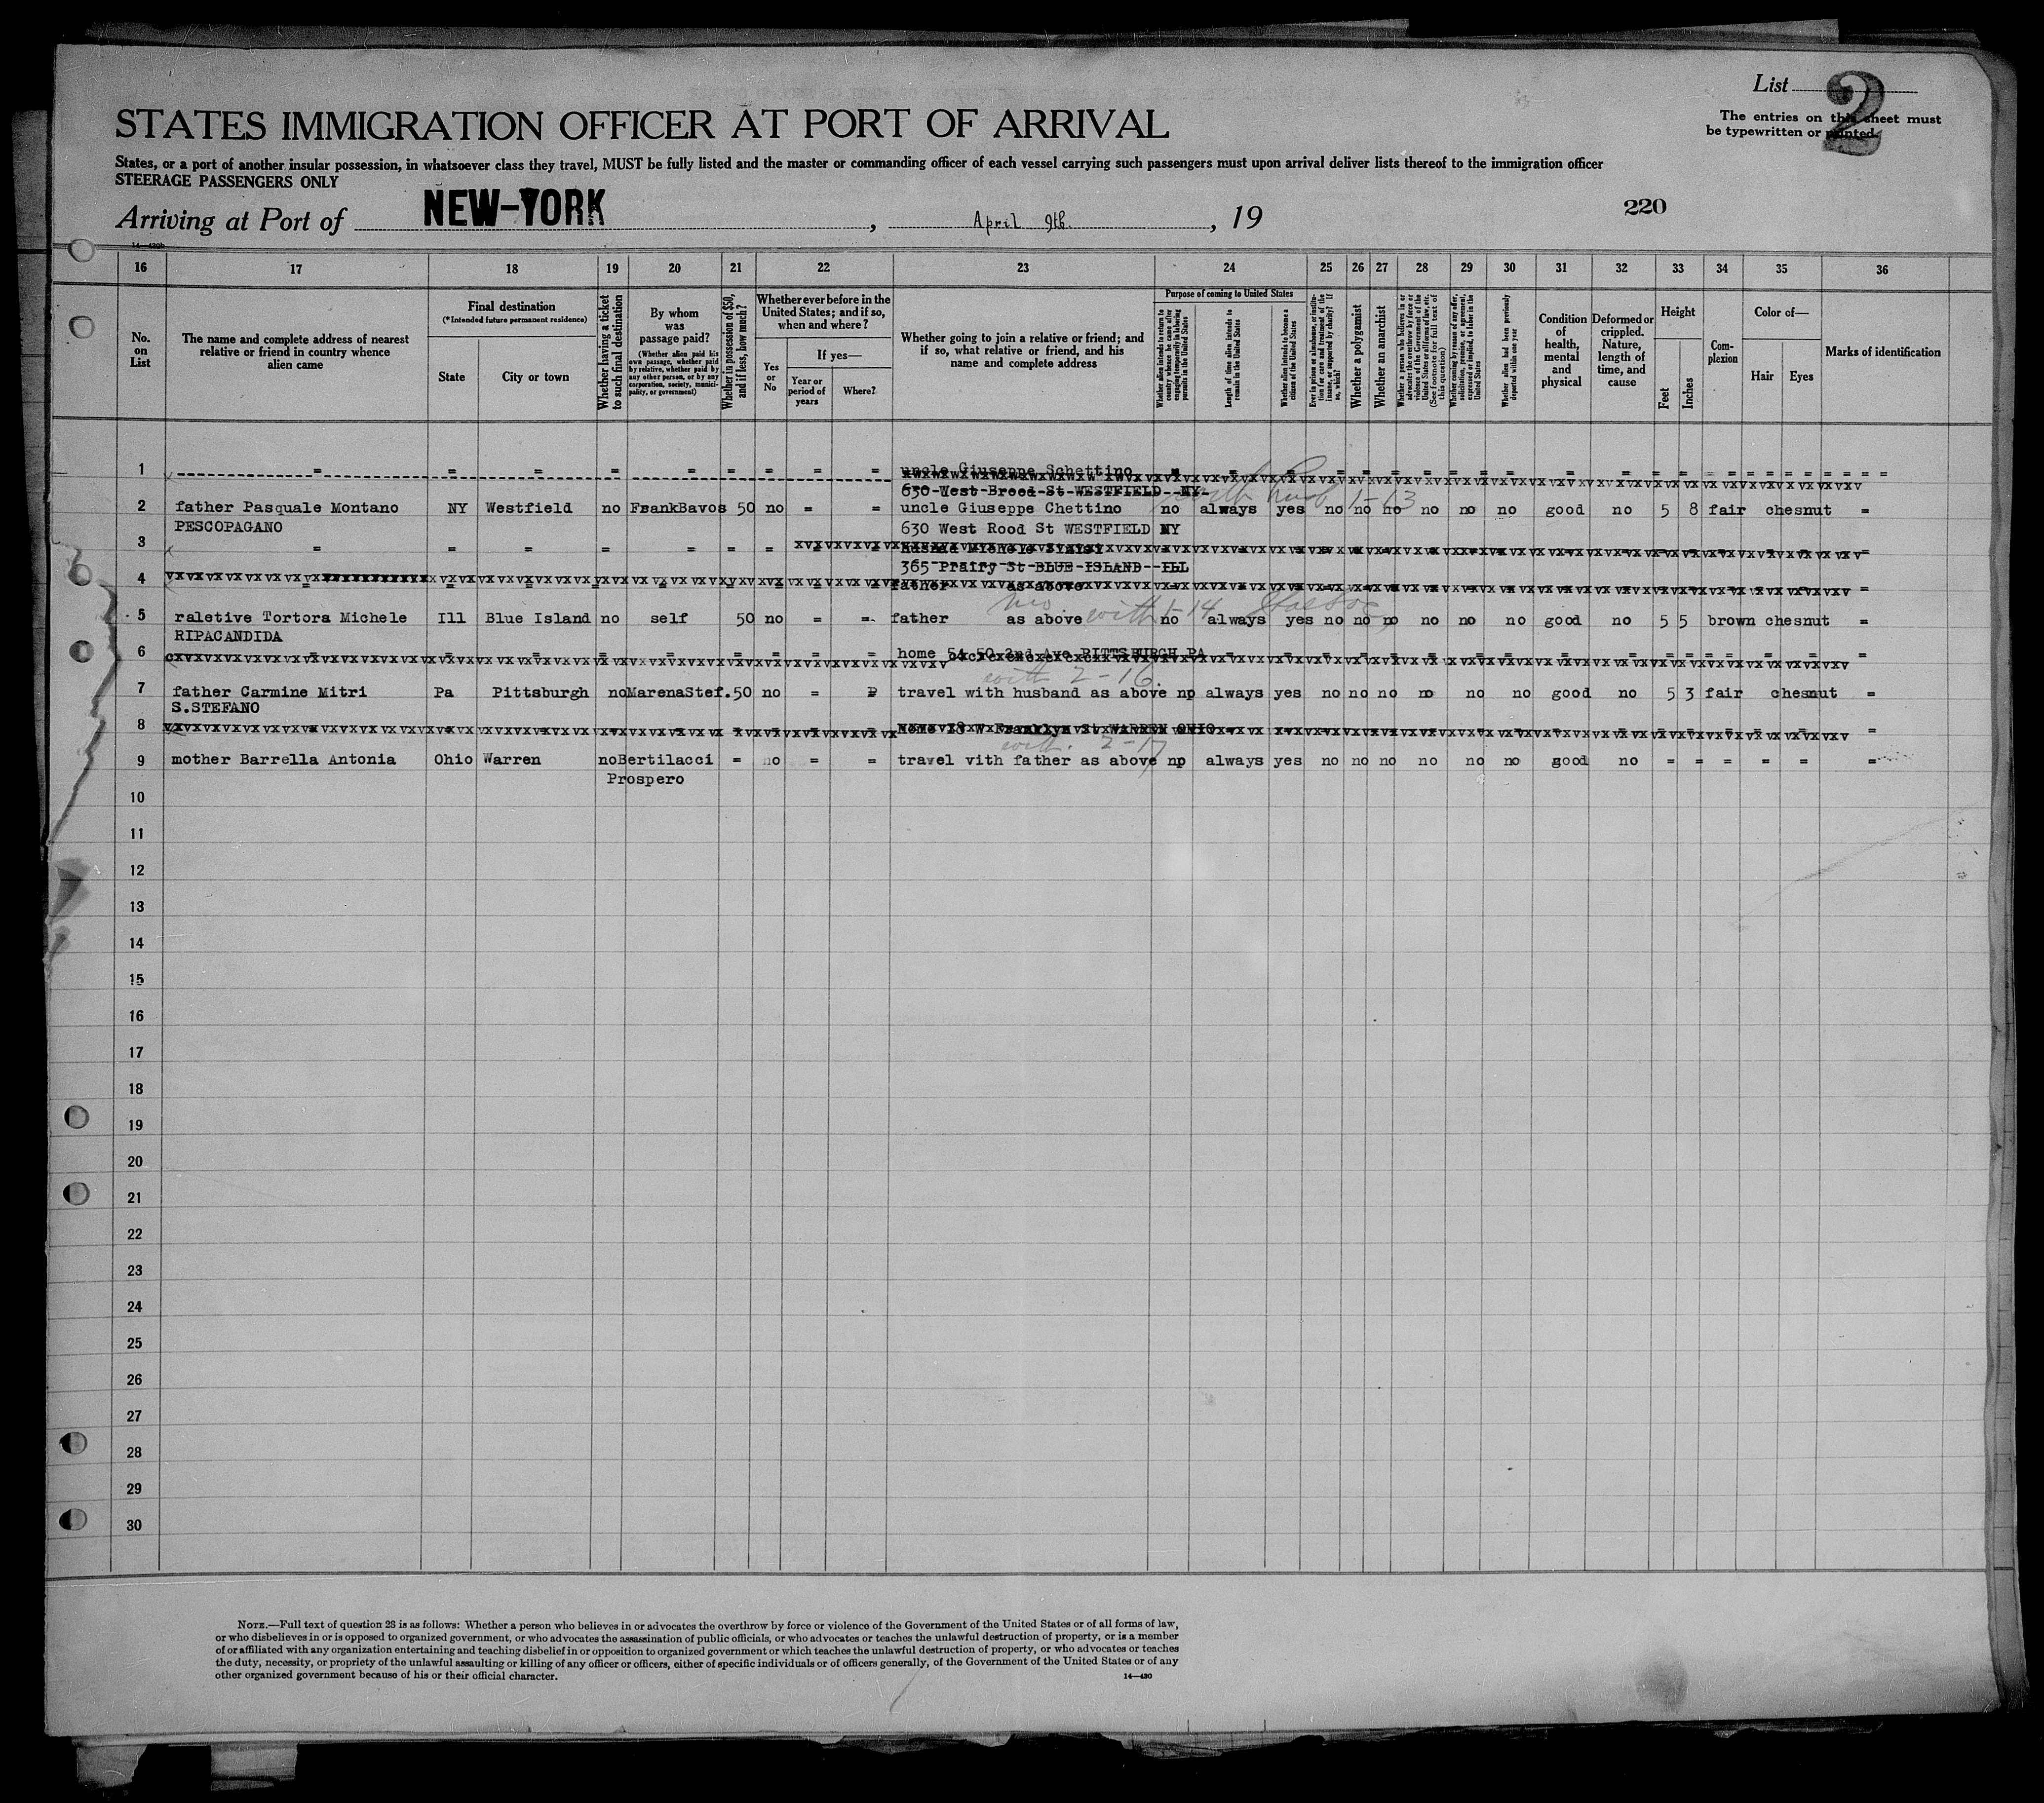 List 2
The entries on this sheet must
be typewritten or printed.
STATES IMMIGRATION OFFICER AT PORT OF ARRIVAL
States, or a port of another insular possession, in whatsoever class they travel, MUST be fully listed and the master or commanding officer of each vessel carrying such passengers must upon arrival deliver lists thereof to the immigration officer
STEERAGE PASSENGERS ONLY
Arriving at Port of NEW-YORK, April 9th, 19
220
14—420b
16 17 18 19 20 21 22 23 24 25 26 27 28 29 30 31 32 33 34 35 36
No. on List
The name and complete address of nearest relative or friend in country whence alien came
Final destination
(*Intended future permanent residence)
State
City or town
Whether having a ticket to such final destination
By whom was passage paid?
(Whether alien paid his own passage, whether paid by relative, whether paid by any other person, or by any corporation, society, municipality, or government)
Whether in possession of $50, and if less, how much?
Whether ever before in the United States; and if so, when and where?
Yes or No
If yes—
Year or period of years
Where?
Whether going to join a relative or friend; and if so, what relative or friend, and his name and complete address
Purpose of coming to United States
Whether alien intends to return to country whence he came after engaging temporarily in laboring pursuits in the United States
Length of time alien intends to remain in the United States
Whether alien intends to become a citizen of the United States
Ever in prison or almshouse, or institution for care and treatment of the insane, or supported by charity? If so, which?
Whether a polygamist
Whether an anarchist
Whether a person who believes in or advocates the overthrow by force or violence of the Government of the United States or all forms of law, etc. (See footnote for full text of this question)
Whether coming by reason of any offer, solicitation, promise, or agreement, expressed or implied, to labor in the United States
Whether alien had been previously deported within one year
Condition of health, mental and physical
Deformed or crippled. Nature, length of time, and cause
Height
Feet
Inches
Complexion
Color of—
Hair
Eyes
Marks of identification
1 uncle Giuseppe Schettino
630 West Broed St WESTFIELD NY
with 1-13
2 father Pasquale Montano NY Westfield no FrankBavos 50 no = = uncle Giuseppe Chettino no always yes no no no no no no good no 5 8 fair chesnut =
PESCOPAGANO 630 West Rood St WESTFIELD NY
3
365 Prairy St BLUE ISLAND ILL
4 father as above
with 1-14
5 raletive Tortora Michele Ill Blue Island no self 50 no = = father as above no always yes no no no no no no good no 5 5 brown chesnut =
RIPACANDIDA
6 home 54 50 2nd Ave PITTSBURGH PA
with 2-16.
7 father Carmine Mitri Pa Pittsburgh no MarenaStef. 50 no = travel with husband as above np always yes no no no no no no good no 5 3 fair chesnut =
S.STEFANO
8 home 18 W Franklyn St WARREN OHIO
with. 2-17
9 mother Barrella Antonia Ohio Warren no Bertilacci = no = = travel vith father as above np always yes no no no no no no good no = = = = = =
Prospero
10
11
12
13
14
15
16
17
18
19
20
21
22
23
24
25
26
27
28
29
30
NOTE.—Full text of question 28 is as follows: Whether a person who believes in or advocates the overthrow by force or violence of the Government of the United States or of all forms of law,
or who disbelieves in or is opposed to organized government, or who advocates the assassination of public officials, or who advocates or teaches the unlawful destruction of property, or is a member
of or affiliated with any organization entertaining and teaching disbelief in or opposition to organized government or which teaches the unlawful destruction of property, or who advocates or teaches
the duty, necessity, or propriety of the unlawful assaulting or killing of any officer or officers, either of specific individuals or of officers generally, of the Government of the United States or of any
other organized government because of his or their official character.
14—420